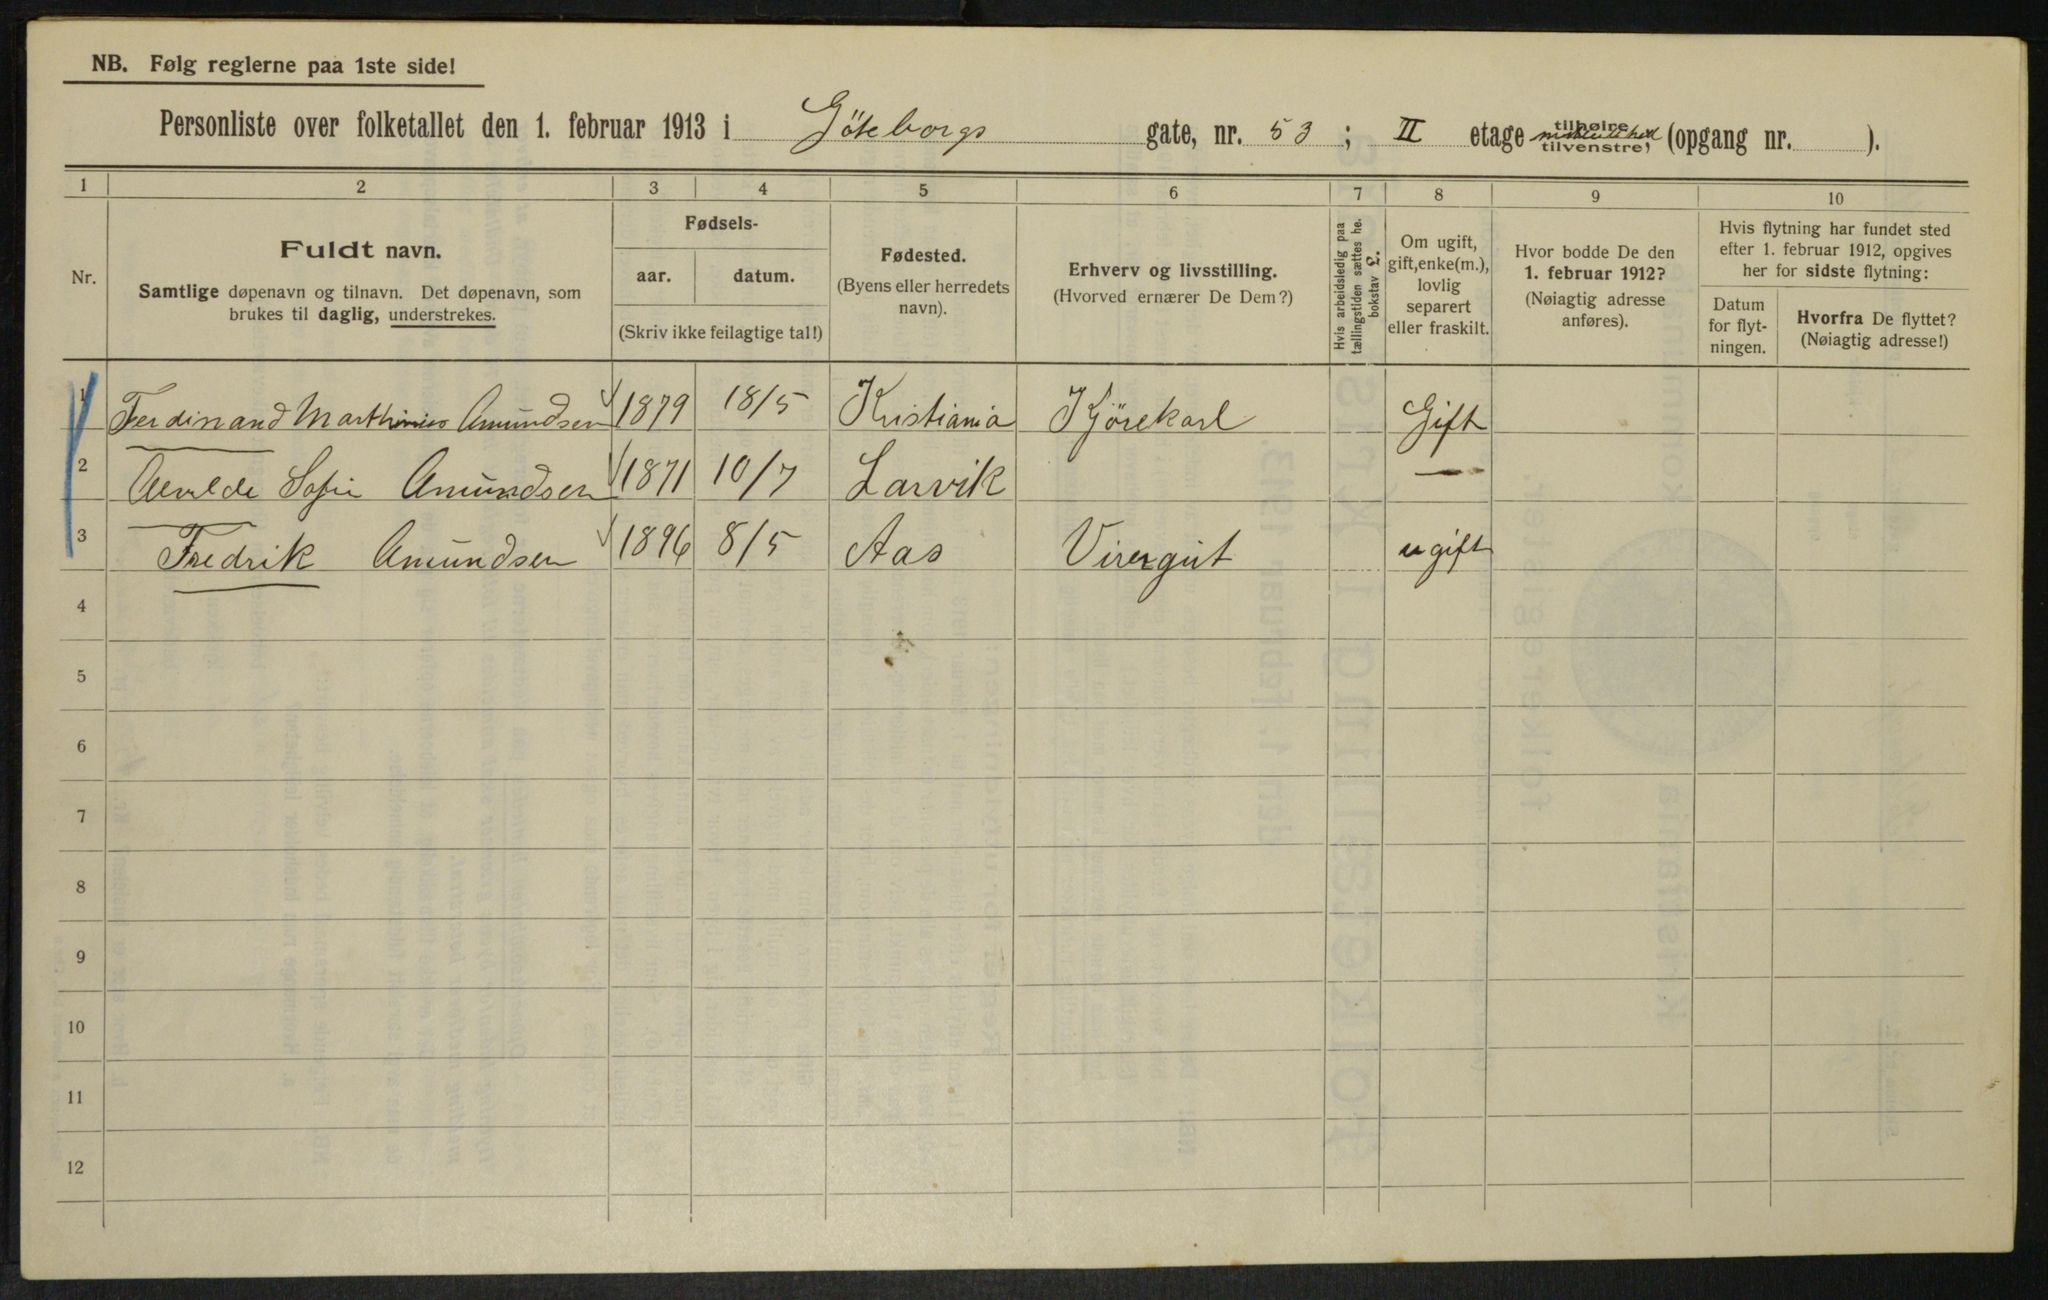 NB. Følg reglerne paa 1ste side!
Personliste over folketallet den 1. februar 1913 i Göteborgs gate, nr. 53 ; II etage tilhøire tilvenstre, (opgang nr. ).
1 2 3 4 5 6 7 8 9 10
Nr.
Fuldt navn.
Samtlige døpenavn og tilnavn. Det døpenavn, som
brukes til daglig, understrekes.
Fødsels-
aar. datum.
(Skriv ikke feilagtige tal!)
Fødested.
(Byens eller herredets
navn).
Erhverv og livsstilling.
(Hvorved ernærer De Dem?)
Hvis arbeidsledig paa
tællingstiden sættes he.
bokstav L.
Om ugift,
gift,enke(m.),
lovlig
separert
eller fraskilt.
Hvor bodde De den
1. februar 1912?
(Nøiagtig adresse
anføres).
Hvis flytning har fundet sted
efter 1. februar 1912, opgives
her for sidste flytning:
Datum
for flyt-
ningen.
Hvorfra De flyttet?
(Nøiagtig adresse!)
1 Ferdinand Marthinius Amundsen 1879 18/5 Kristiania Kjörekarl Gift
2 Sofie Amundsen 1871 10/7 Larvik —
3 Fredrik Amundsen 1896 8/5 Aas Visergut ugift
4
5
6
7
8
9
10
11
12